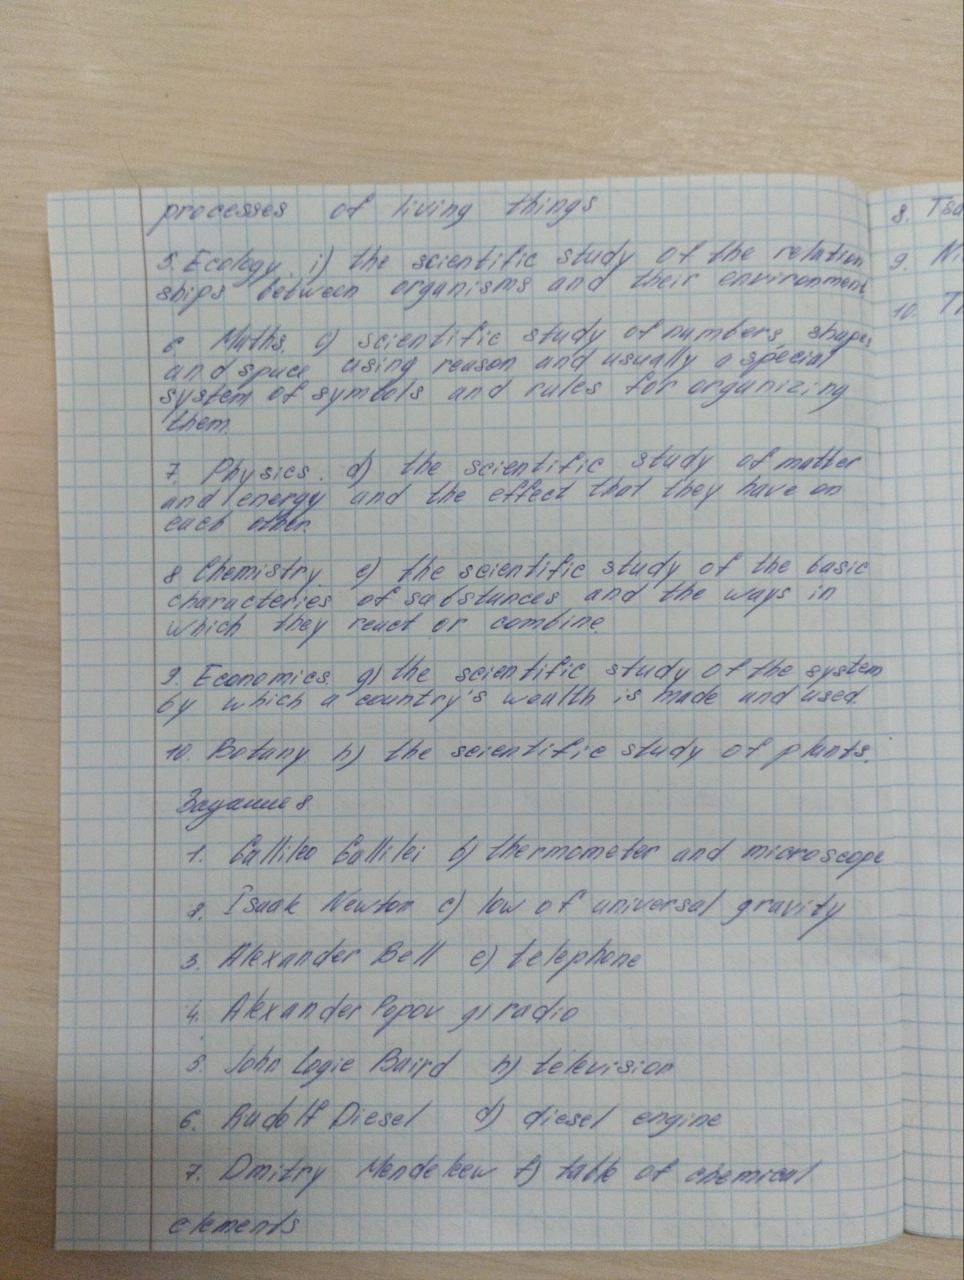 processes of living things
5. Ecology. i) the scientific study of the relation
ships between organisms and their environment
6. Maths. a) scientific study of numbers, shapes
and space using reason and usually a special
system of symbols and rules for organizing
them.
7. Physics. d) the scientific study of matter
and energy and the effect that they have on
each other.
8 Chemistry. e) the scientific study of the basic
characteries of substances and the ways in
which they react or combine.
9. Economics g) the scientific study of the system
by which a country's wealth is made and used.
10. Botany h) the scientific study of plants.
Задание 8
1. Gallileo Gallilei b) thermometer and microscope
2. Isaak Newton c) low of universal gravity
3. Alexander Bell e) telephone
4. Alexander Popov g) radio
5. John Logie Baird h) television
6. Rudolf Diesel d) diesel engine
7. Dmitry Mendeleev f) table of chemical
elements
8.
9.
10.